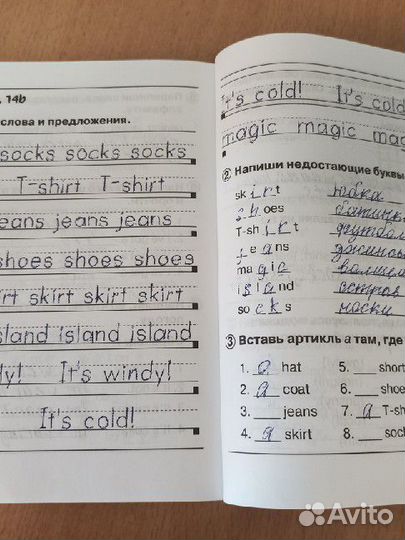 14b
слова и предложения.
socks socks socks
T-shirt T-shirt
jeans jeans
shoes shoes shoes
skirt skirt skirt
island island
It's windy!
It's cold!
It's cold! It's cold
magic magic
② Напиши недостающие буквы
skirt юбка
shoes ботинк
T-shirt футбол
jeans джинсы
magic волшеб
island остров
socks носки
③ Вставь артикль a там, где
1. a hat 5. ___ short
2. a coat 6. ___ shoe
3. ___ jeans 7. a T-sh
4. a skirt 8. ___ soc
Avito